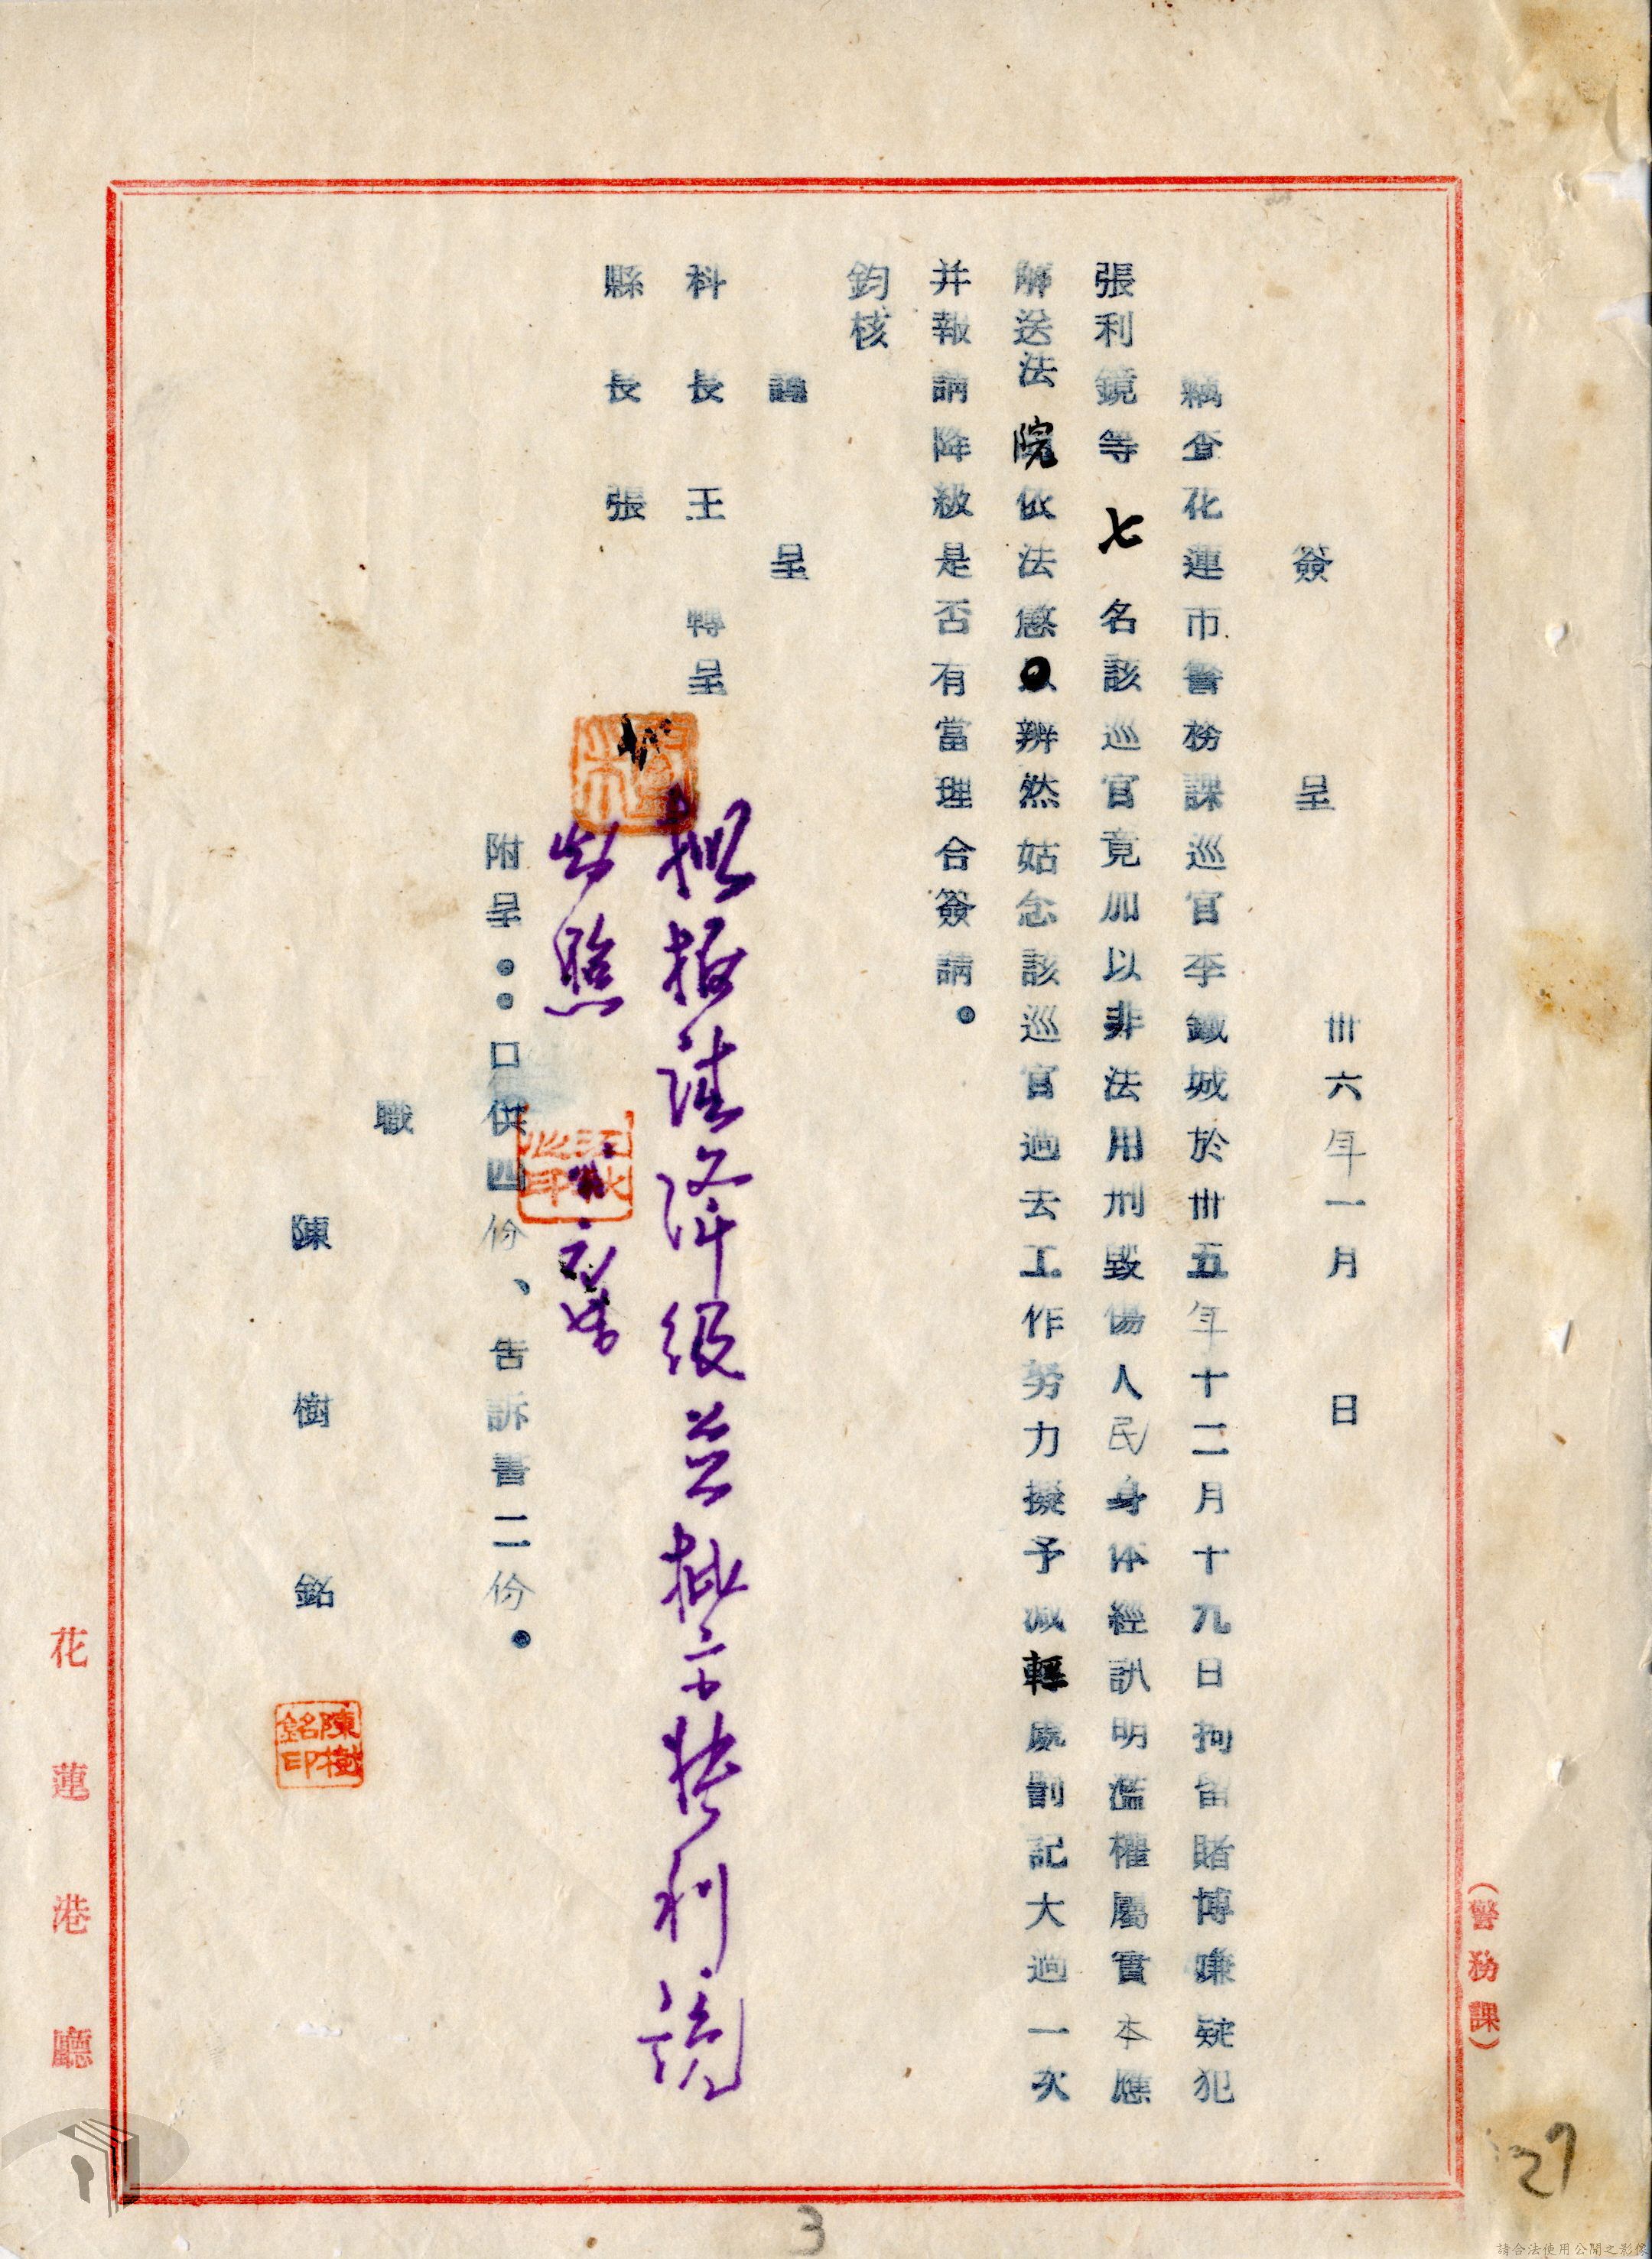 簽呈
卅六年一月 日
竊查花蓮市警務課巡官李鐵城於卅五年十二月十九日拘留賭博嫌疑犯
張利鏡等七名該巡官竟加以非法用刑毀傷人民身体經訊明濫權屬實本應
解送法院依法懲辦然姑念該巡官過去工作努力擬予減輕處罰記大過一次
并報請降級是否有當理合簽請。
鈞核
謹呈
科長王 轉呈
縣長張
擬報請降級並批示張利鏡
知照
附呈：口供四份、告訴書二份。
職
陳樹銘
陳樹銘印
花蓮港廳
(警務課)
27
3
請合法使用公開之影像